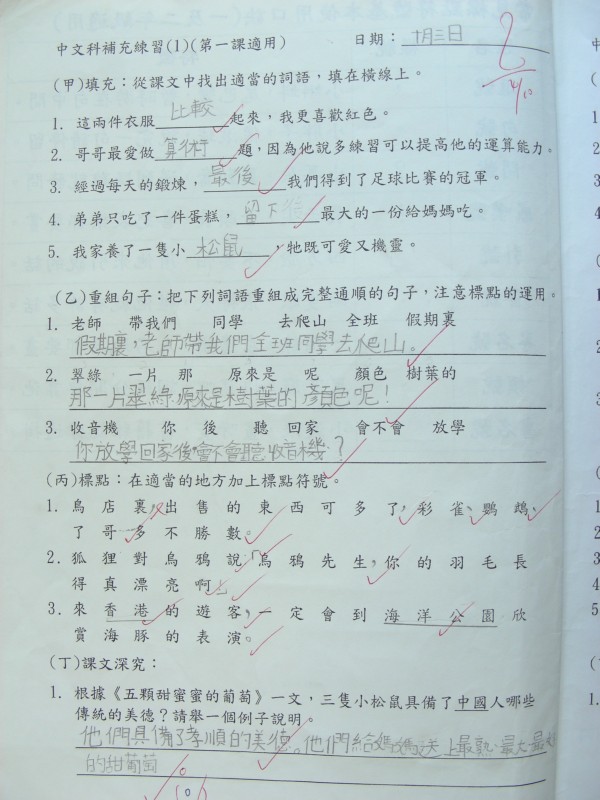 中文科補充練習(1)(第一課適用) 日期：十月三日
(甲)填充：從課文中找出適當的詞語，填在橫線上。
1. 這兩件衣服比較起來，我更喜歡紅色。
2. 哥哥最愛做算術題，因為他說多練習可以提高他的運算能力。
3. 經過每天的鍛煉，最後我們得到了足球比賽的冠軍。
4. 弟弟只吃了一件蛋糕，留下最大的一份給媽媽吃。
5. 我家養了一隻小松鼠，牠既可愛又機靈。
(乙)重組句子：把下列詞語重組成完整通順的句子，注意標點的運用。
1. 老師 帶我們 同學 去爬山 全班 假期裏
假期裏，老師帶我們全班同學去爬山。
2. 翠綠 一片 那 原來是 呢 顏色 樹葉的
那一片翠綠原來是樹葉的顏色呢！
3. 收音機 你 後 聽 回家 會不會 放學
你放學回家後，會不會聽收音機？
(丙)標點：在適當的地方加上標點符號。
1. 鳥店裏，出售的東西可多了，彩雀、鸚鵡、
了哥多不勝數。
2. 狐狸對烏鴉說：「烏鴉先生，你的羽毛長
得真漂亮啊！」
3. 來香港的遊客，一定會到海洋公園欣
賞海豚的表演。
(丁)課文深究：
1. 根據《五顆甜蜜蜜的葡萄》一文，三隻小松鼠具備了中國人哪些
傳統的美德？請舉一個例子說明。
他們具備了孝順的美德。他們給媽媽送上最熟、最大、最
的甜葡萄